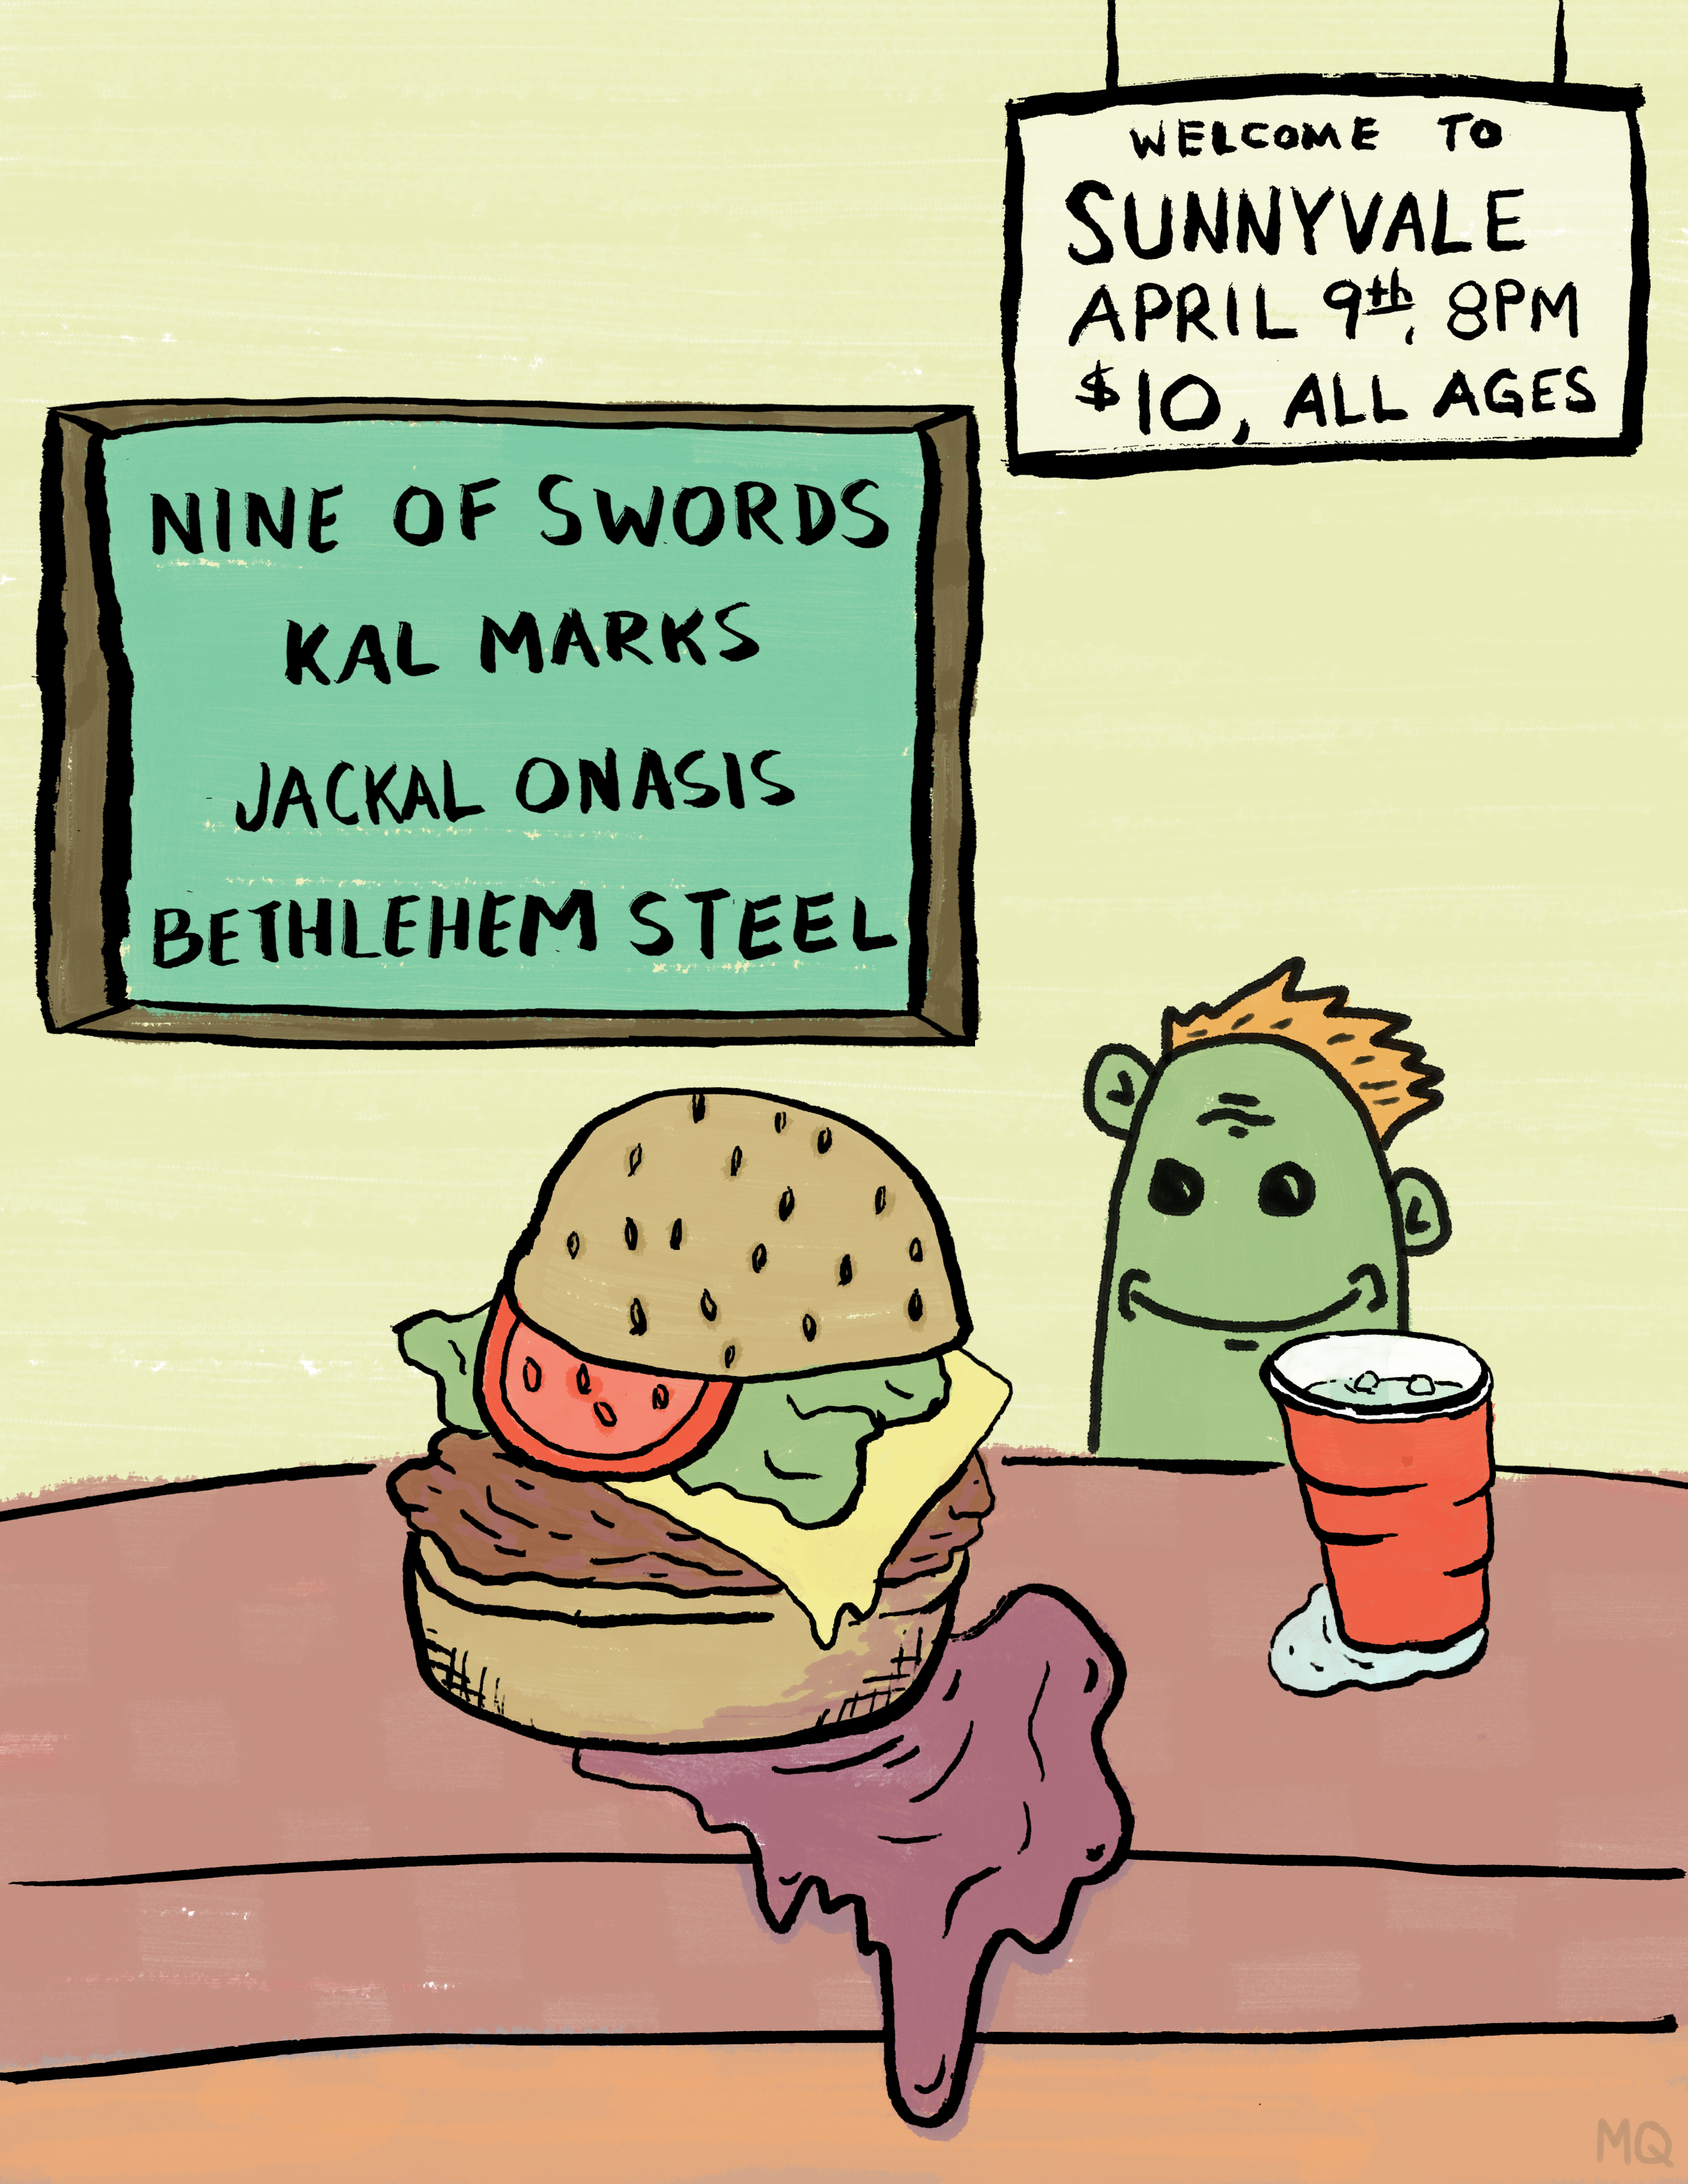 WELCOME TO
SUNNYVALE
APRIL 9th, 8PM
$10, ALL AGES
NINE OF SWORDS
KAL MARKS
JACKAL ONASIS
BETHLEHEM STEEL
MQ